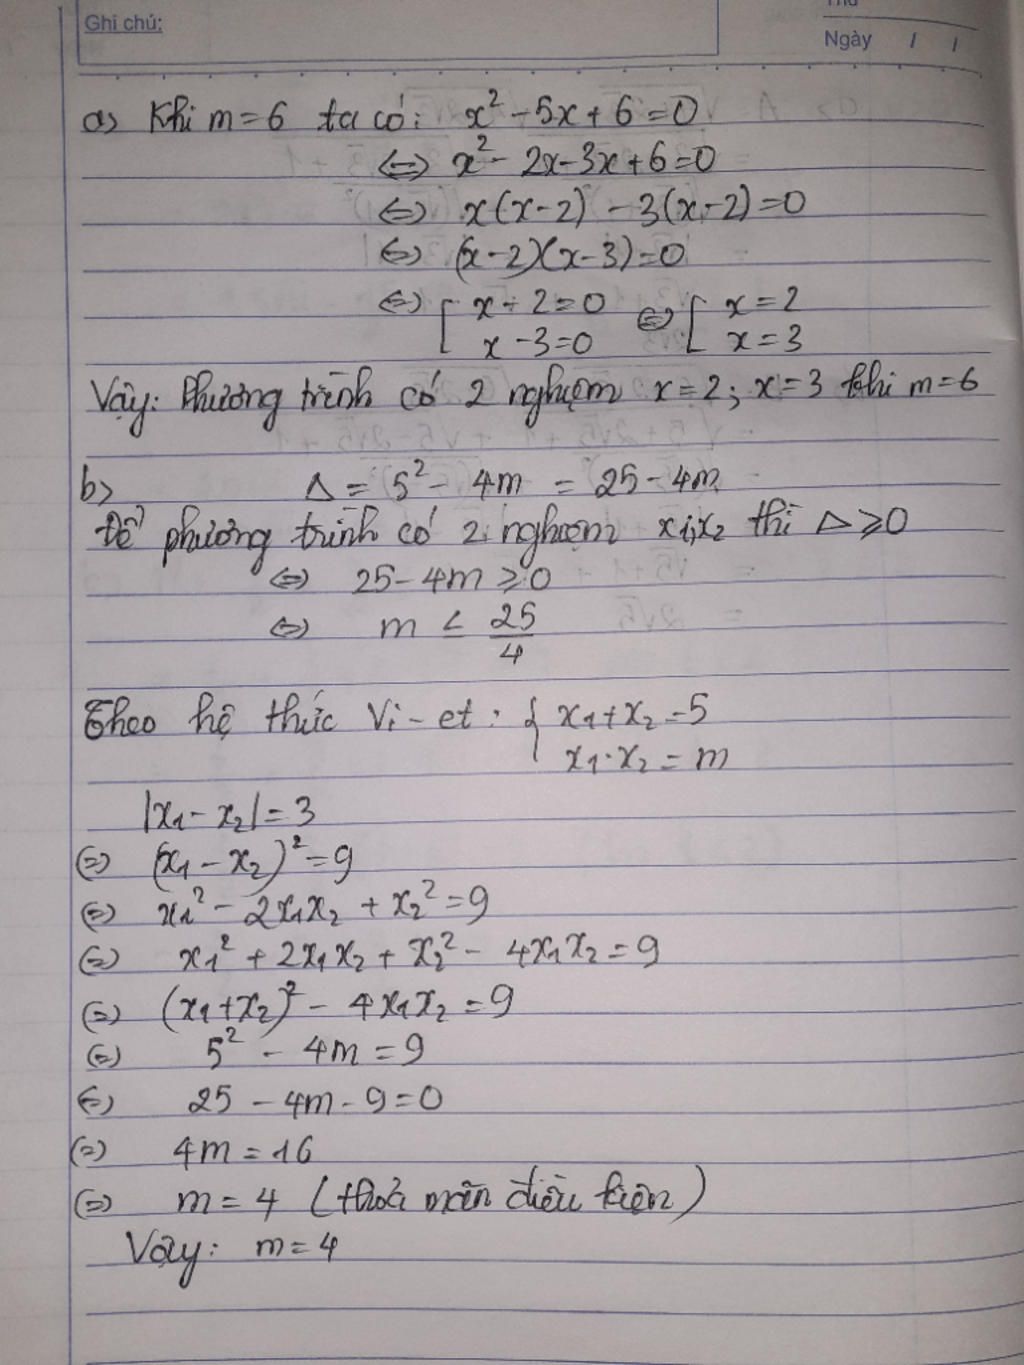 Ghi chú:
Thứ
Ngày / /
a) Khi m=6 ta có: x² - 5x + 6 = 0
⇔ x² - 2x - 3x + 6 = 0
⇔ x(x-2) - 3(x-2) = 0
⇔ (x-2)(x-3) = 0
⇔ [ x - 2 = 0 ⇔ [ x = 2
x - 3 = 0 x = 3
Vậy: Phương trình có 2 nghiệm x = 2; x = 3 khi m = 6
b) Δ = 5² - 4m = 25 - 4m
Để phương trình có 2 nghiệm x₁;x₂ thì Δ ≥ 0
⇔ 25 - 4m ≥ 0
⇔ m < 25/4
Theo hệ thức Vi-et: { x₁ + x₂ = 5
x₁ . x₂ = m
|x₁ - x₂| = 3
⇔ (x₁ - x₂)² = 9
⇔ x₁² - 2x₁x₂ + x₂² = 9
⇔ x₁² + 2x₁x₂ + x₂² - 4x₁x₂ = 9
⇔ (x₁+x₂)² - 4x₁x₂ = 9
⇔ 5² - 4m = 9
⇔ 25 - 4m - 9 = 0
⇔ 4m = 16
⇔ m = 4 (thoả mãn điều kiện)
Vậy: m = 4